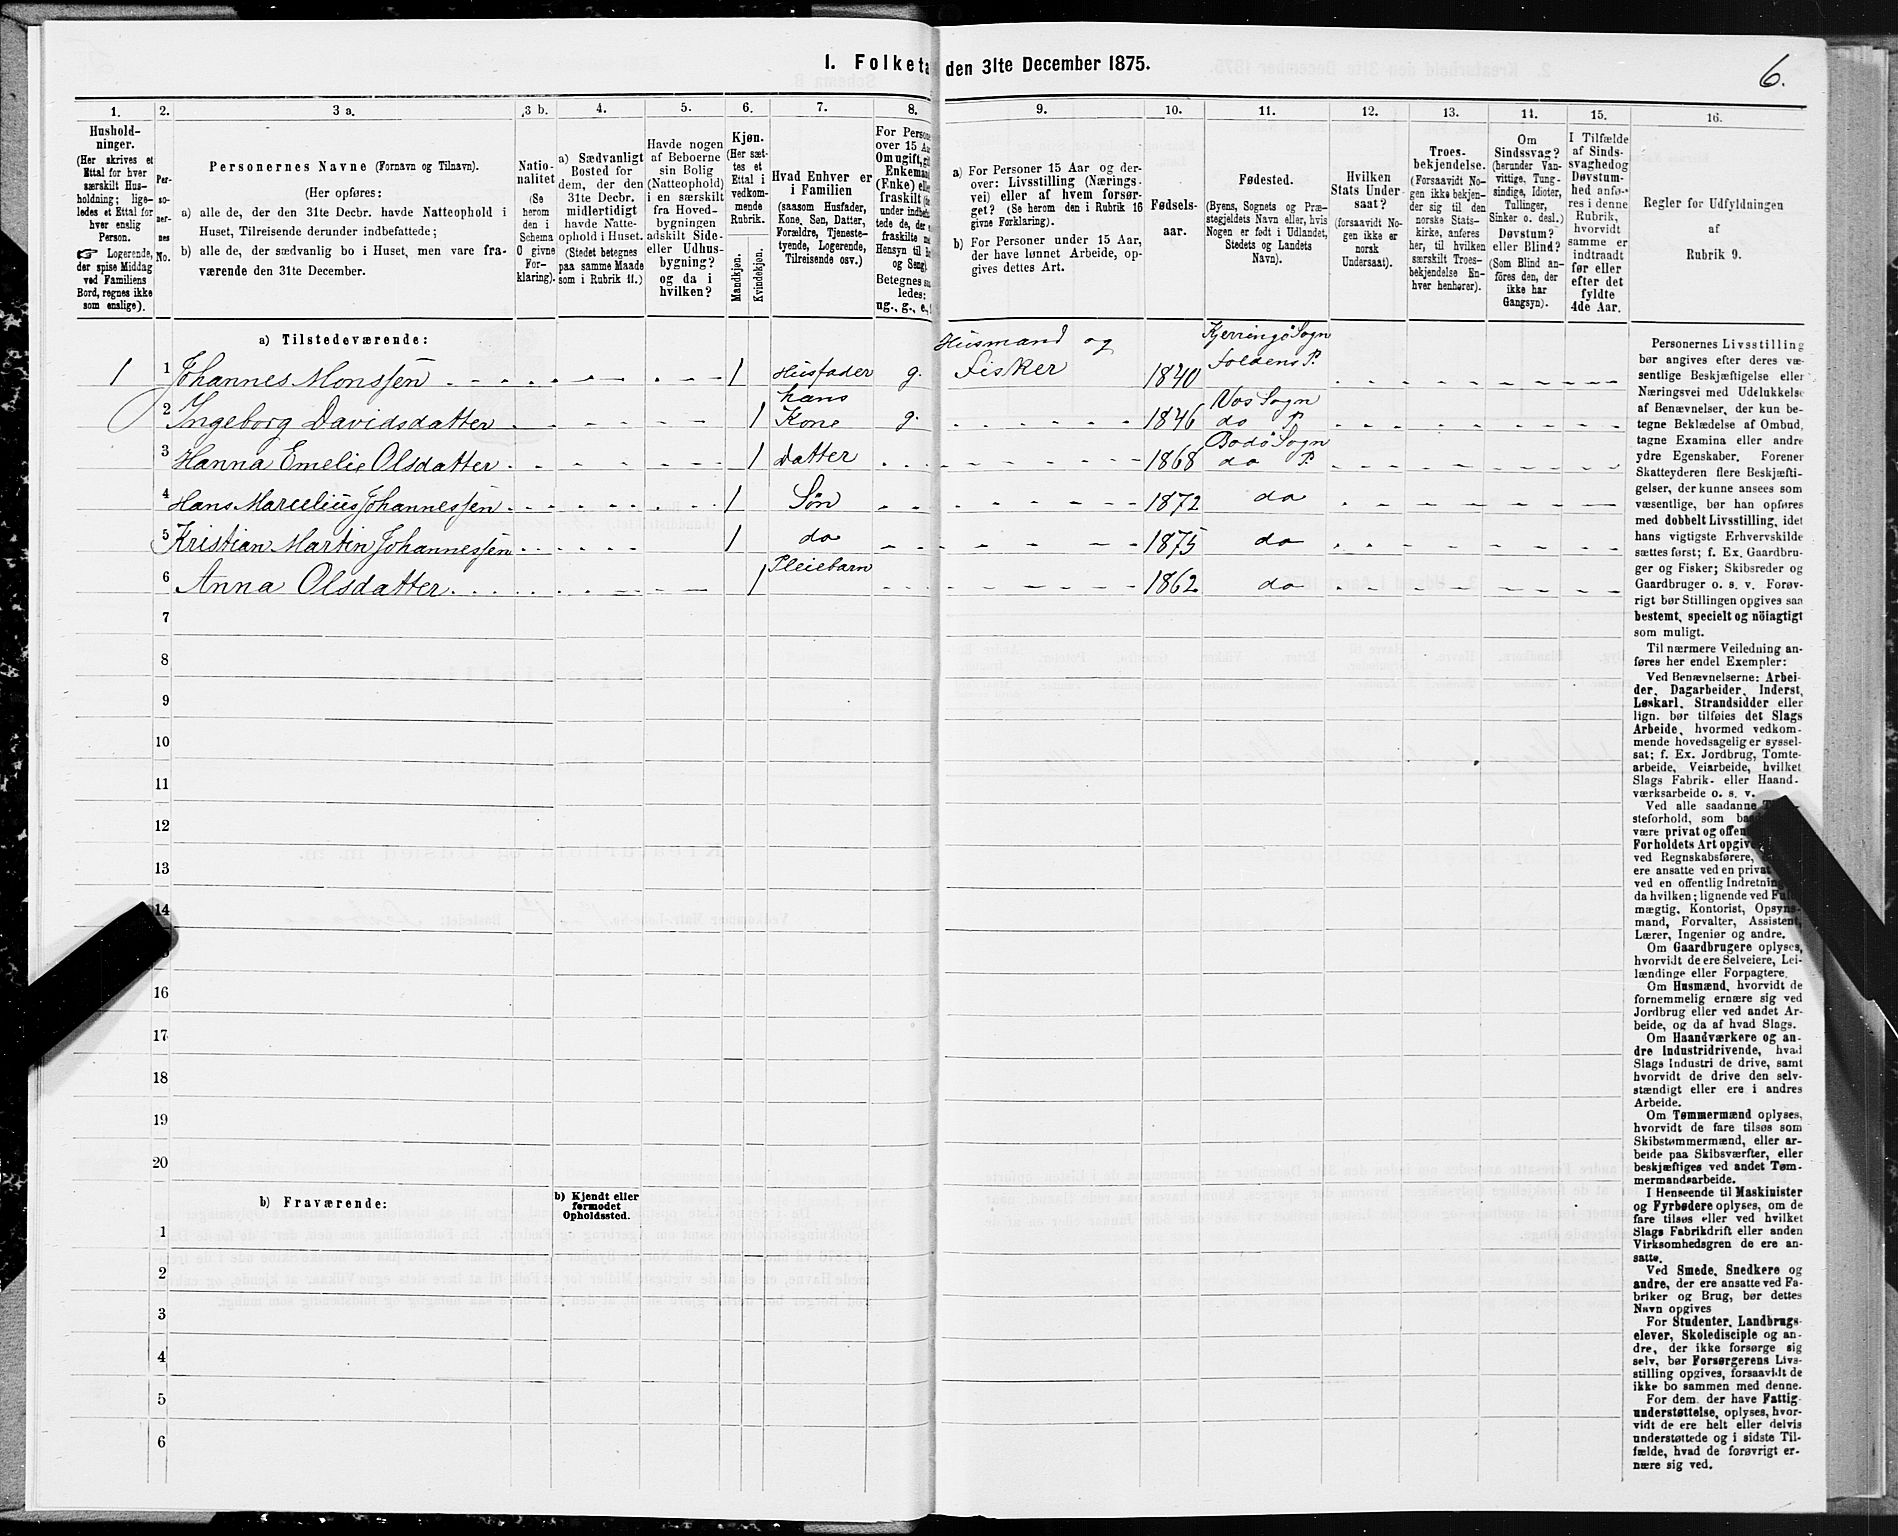 I. Folketæ den 31te December 1875.
6.
1.
Hushold-
ninger.
(Her skrives et
Ettal for hver
særskilt Hus-
holdning; lige-
ledes et Ettal for
hver enslig
Person.
☞ Logerende,
der spise Middag
ved Familiens
Bord, regnes ikke
som enslige).
2.
Per-
so-
ner-
nes
No.
3 a.
Personernes Navne (Fornavn og Tilnavn).
(Her opføres:
a) alle de, der den 31te Decbr. havde Natteophold i
Huset, Tilreisende derunder indbefattede;
b) alle de, der sædvanlig bo i Huset, men vare fra-
værende den 31te December.
3 b.
Natio-
nalitet
(Se
herom
den i
Schema
O givne
For-
klaring).
4.
a) Sædvanligt
Bosted for
dem, der den
31te Decbr.
midlertidigt
havde Natte-
ophold i Huset.
(Stedet betegnes
paa samme Maade
som i Rubrik 11.)
5.
Havde nogen
af Beboerne
sin Bolig
(Natteophold)
i en særskilt
fra Hoved-
bygningen
adskilt Side-
eller Udhus-
bygning?
og da i
hvilken?
6.
Kjøn.
(Her sæt-
tes et
Ettal i
vedkom-
mende
Rubrik.
Mandkjøn.
Kvindekjøn.
7.
Hvad Enhver er
i Familien
(saasom Husfader,
Kone, Søn, Datter,
Forældre, Tjeneste-
tyende, Logerende,
Tilreisende osv.)
8.
For Persone
over 15 Aa
Omugift, gif
Enkeman
(Enke) elle
fraskilt
under indbe
tede de, der
fraskilte
Hensyn til
og Seng)
Betegnes
ledes:
ug., g., e.,
9.
a) For Personer 15 Aar og der-
over: Livsstilling (Nærings-
vei) eller af hvem forsør-
get? (Se herom den i Rubrik 16
givne Forklaring).
b) For Personer under 15 Aar,
der have lønnet Arbeide, op-
gives dettes Art.
10.
Fødsels-
aar.
11.
Fødested.
(Byens, Sognets og Præ-
stegjeldets Navn eller, hvis
Nogen er født i Udlandet,
Stedets og Landets
Navn).
12.
Hvilken
Stats Under-
saat?
(forsaavidt No-
gen ikke er
norsk
Undersaat).
13.
Troes-
bekjendelse.
(Forsaavidt No-
gen ikke bekjen-
der sig til den
norske Stats-
kirke, anføres
her, til hvilken
særskilt Troes-
bekjendelse En-
hver henhører).
14.
Om
Sindssvag?
(herunder Van-
vittige, Tung-
sindige, Idioter,
Tullinger,
Sinker o. desl.)
Døvstum?
eller Blind?
(Som Blind an-
føres den, der
ikke har
Gangsyn).
15.
I Tilfælde
af Sinds-
svaghedog
Døvstum-
hed anfø-
res i denne
Rubrik,
hvorvidt
samme er
indtraadt
før eller
efter det
fyldte
4de Aar.
16.
Regler for Udfyldningen
af
Rubrik 9.
a) Tilstedeværende:
1 1 Johannes Monssen 1 Husfader g. Husmand og Fisker 1840 Kjerringø Sogn Foldens P.
2 Ingeborg Davidsdatter 1 hans Kone g. 1846 Nos Sogn do P.
3 Hanna Emelie Olsdatter 1 Datter 1868 Bodø Sogn do P.
4 Hans Marcelius Johannessen 1 Søn 1872 do
5 Kristian Martin Johannessen 1 do 1875 do
6 Anna Olsdatter 1 Pleiebarn 1862 do
7
8
9
10
11
12
13
14
16
17
18
19
20
b) Fraværende:
b) Kjendt eller
formodet
Opholdssted.
1
2
3
4
5
6
Personernes Livsstilling
bør angives efter deres væ-
sentlige Beskjæftigelse eller
Næringsvei med Udelukkelse
af Benævnelser, der kun be-
tegne Beklædelse af Ombud,
tagne Examina eller andre
ydre Egenskaber. Forener
Skatteyderen flere Beskjæfti-
gelser, der kunne ansees som
væsentlige, bør han opføres
med dobbelt Livsstilling, idet
hans vigtigste Erhvervskilde
sættes først; f. Ex. Gaardbru-
ger og Fisker; Skibsreder og
Gaardbruger o. s. v. Forøv-
rigt bør Stillingen opgives saa
bestemt, specielt og nöiagtigt
som muligt.
Til nærmere Veiledning an-
føres her endel Exempler:
Ved Benævnelserne: Arbei-
der, Dagarbeider, Inderst,
Løskarl, Strandsidder eller
lign. bør tilføies det Slags
Arbeide, hvormed vedkom-
mende hovedsagelig er syssel-
sat; f. Ex. Jordbrug, Tomte-
arbeide, Veiarbeide, hvilket
Slags Fabrik- eller Haand-
værksarbeide o. s. v.
Ved alle saadanne
steforhold, som
være privat og offen
Forholdets Art opgive
ved Regnskabsførere,
ere ansatte ved en privat
ved en offentlig Indretning
da hvilken; lignende ved Fuld-
mægtig, Kontorist, Opsyns-
mand, Forvalter, Assistent,
Lærer, Ingeniør og andre.
Om Gaardbrugere oplyses,
hvorvidt de ere Selveiere, Lei-
lændinge eller Forpagtere.
Om Husmænd, hvorvidt de
fornemmelig ernære sig ved
Jordbrug eller ved andet Ar-
beide, og da af hvad Slags.
Om Haandværkere og an-
dre Industridrivende, hvad
Slags Industri de drive, samt
hvorvidt de drive den selv-
stændigt eller ere i andres
Arbeide.
Om Tømmermænd oplyses,
hvorvidt de fare tilsøs som
Skibstømmermænd, eller ar-
beide paa Skibsværfter, eller
beskjæftiges ved andet Tøm-
mermandsarbeide.
I Henseende til Maskinister
og Fyrbødere oplyses, om de
fare tilsøs eller ved hvilket
Slags Fabrikdrift eller anden
Virksomhedsgren de ere an-
satte.
Ved Smede, Snedkere og
andre, der ere ansatte ved Fa-
briker og Brug, bør dettes
Navn opgives
For Studenter, Landbrugs-
elever, Skoledisciple og an-
dre, der ikke forsørge sig
selv, bør Forsørgerens Livs-
stilling opgives, forsaavidt de
ikke bo sammen med denne.
For dem, der have Fattig-
understøttelse, oplyses, hvor-
vidt de ere helt eller delvis
understøttede og i sidste Til-
fælde, hvad de forøvrigt er-
nære sig ved.